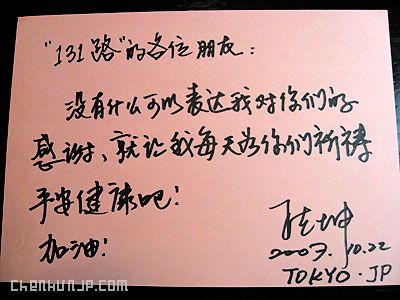 "131路"的各位朋友:
没有什么可以表达我对你们的
感谢,就让我每天为你们祈祷
平安健康吧!
加油!
陈坤
2007.10.22
TOKYO.JP
chenkunjp.com